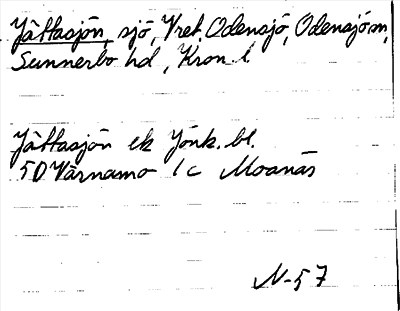 Jättasjön, sjö, Vret, Odensjö, Odensjö sn,
Sunnerbo hd, Kron. l
Jättasjön ek Jönk. bl.
5D Värnamo 1c Moanäs
N-57